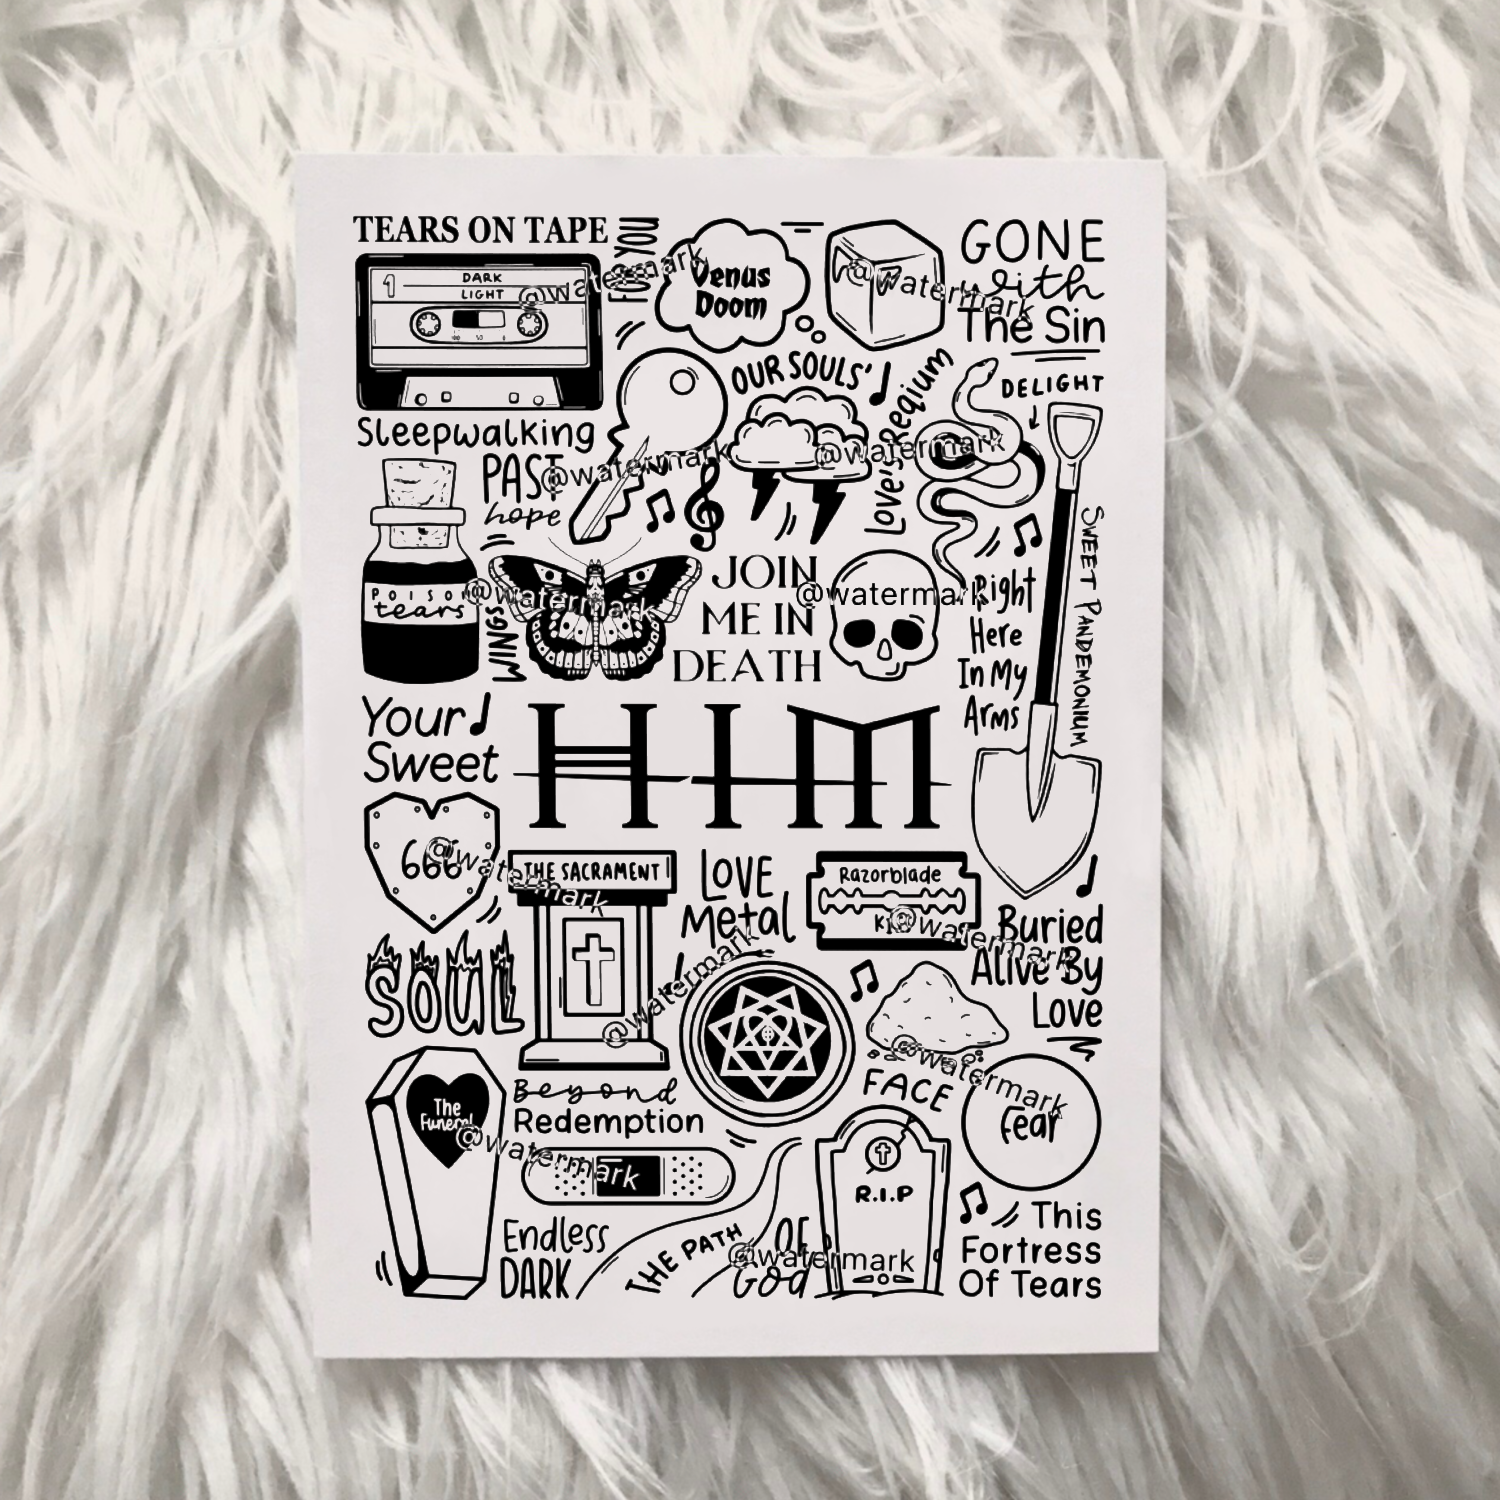 TEARS ON TAPE
FOR YOU
1
DARK
LIGHT
@watermark
Venus
Doom
@watermark
GONE
with
The Sin
OUR SOULS'
Love's Reqium
DELIGHT
Sleepwalking
PAST
hope
@watermark
@watermark
SWEET PANDEMONIUM
POISON
tears
@watermark
WINGS
JOIN
ME IN
DEATH
@watermark
Right
Here
In My
Arms
Your
Sweet
HIM
666
@watermark
THE SACRAMENT
LOVE
Metal
Razorblade
@watermark
Buried
Alive By
Love
SOUL
@watermark
@watermark
FACE
Fear
The
Funeral
@watermark
Beyond
Redemption
R.I.P
Endless
DARK
THE PATH
OF
God
@watermark
This
Fortress
Of Tears